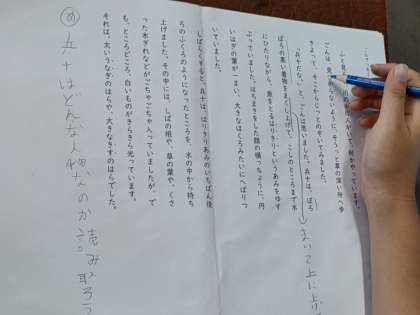 川の中に人がいて、何かやっています。
ごんは、見つからないように、そうっと草の深い所へ歩
きよって、そこからじっとのぞいてみました。
「兵十だな。」と、ごんは思いました。兵十は、ぼろ
ぼろの黒い着物をまくし上げて、こしのところまで水
にひたりながら、魚をとるはりきりというあみをゆす
ぶっていました。はちまきをした顔の横っちょうに、円
いはぎの葉が一まい、大きなほくろみたいにへばりつ
いていました。
しばらくすると、兵十は、はりきりあみのいちばん後
ろのふくろのようになったところを、水の中から持ち
上げました。その中には、しばの根や、草の葉や、くさ
った木ぎれなどがごちゃごちゃ入っていましたが、で
も、ところどころ、白いものがきらきら光っています。
それは、太いうなぎのはらや、大きなきすのはらでした。
まいて上に上げ
め 兵十はどんな人物なのか読み取ろう